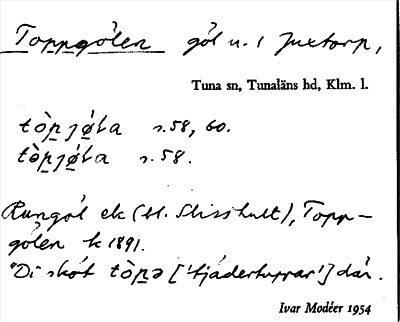 Toppgölen göl u. Juxtorp,
Tuna sn, Tunaläns hd, Klm. l.
tòp̲jǿla s. 58, 60.
tòp̲jǿla s. 58.
Rungöl ek (Slisshult), Topp-
gölen k 1891.
"Di sköt tòp̲ə ['fjädertuppar'] där.
Ivar Modéer 1954